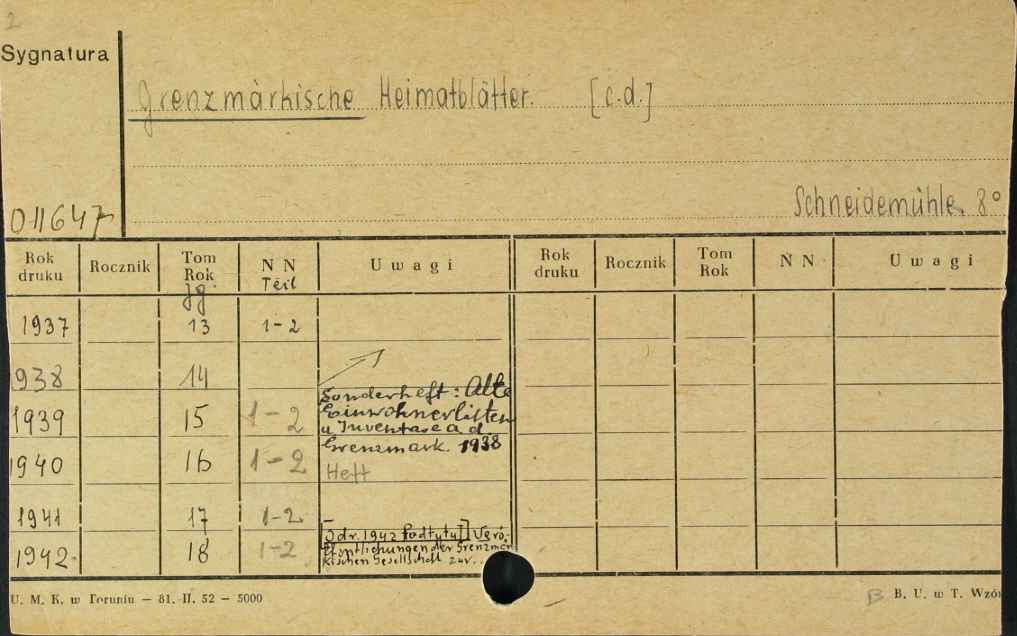 2
Sygnatura
Grenzmärkische Heimatblätter. [c.d.]
Schneidemühle. 8°
011647
Rok druku Rocznik Tom Rok Jg. N N Teil Uwagi Rok druku Rocznik Tom Rok N N Uwagi
1937 13 1-2
1938 14
Sonderheft: Alte
1939 15 1-2 Einwohnerlisten
u Inventare a.d.
Grenzmark. 1938
1940 16 1-2 Heft
1941 17 1-2
[Odr. 1942 Podtytuł] Verö-
1942. 18 1-2 ffentlichungen der Grenzmär
kischen Gesellschaft zur...
U. M. K. w Toruniu — 81. II. 52 — 5000
B B. U. w T. Wzó